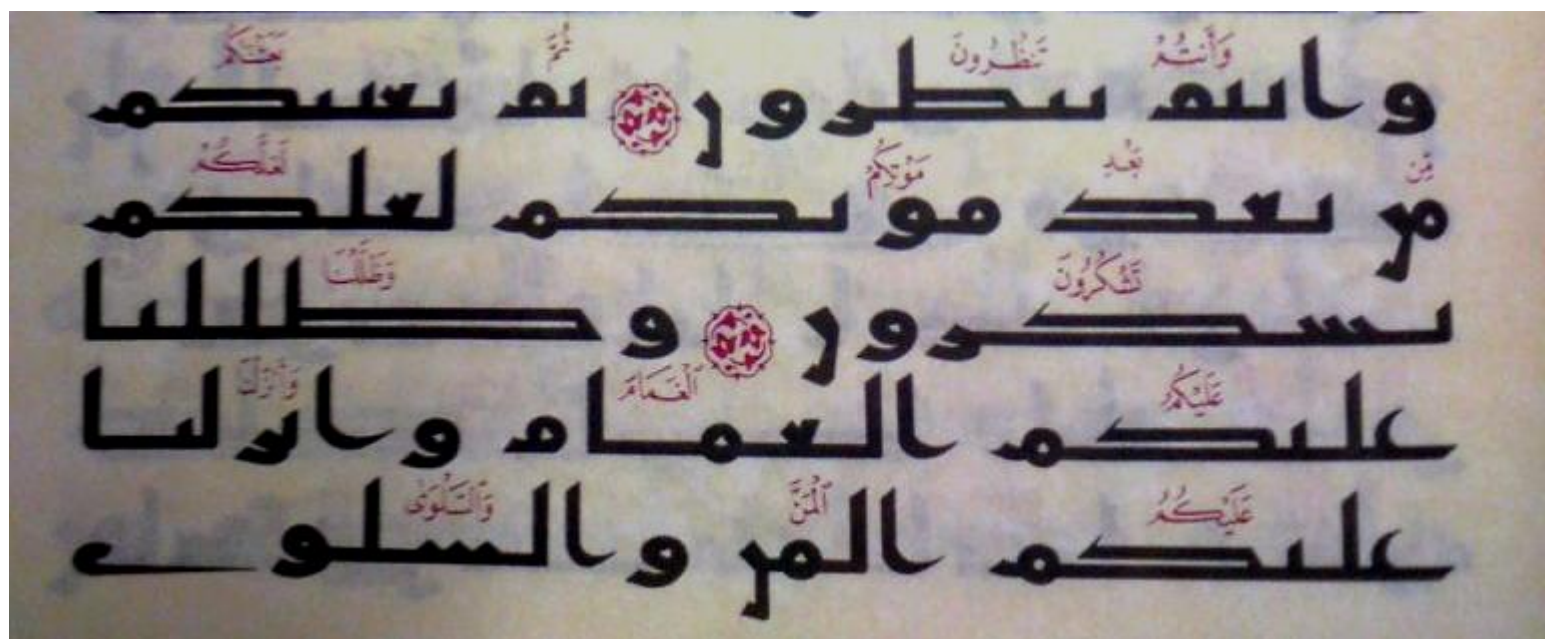 وَأَنتُمْ تَنظُرُونَ ثُمَّ بَعَثْنَٰكُم
وانتم تنظرون ثم بعثنكم
مِّنۢ بَعْدِ مَوْتِكُمْ لَعَلَّكُمْ
من بعد موتكم لعلكم
تَشْكُرُونَ وَظَلَّلْنَا
تشكرون وظللنا
عَلَيْكُمُ ٱلْغَمَامَ وَأَنزَلْنَا
عليكم الغمام وانزلنا
عَلَيْكُمُ ٱلْمَنَّ وَٱلسَّلْوَىٰ
عليكم المن والسلوى